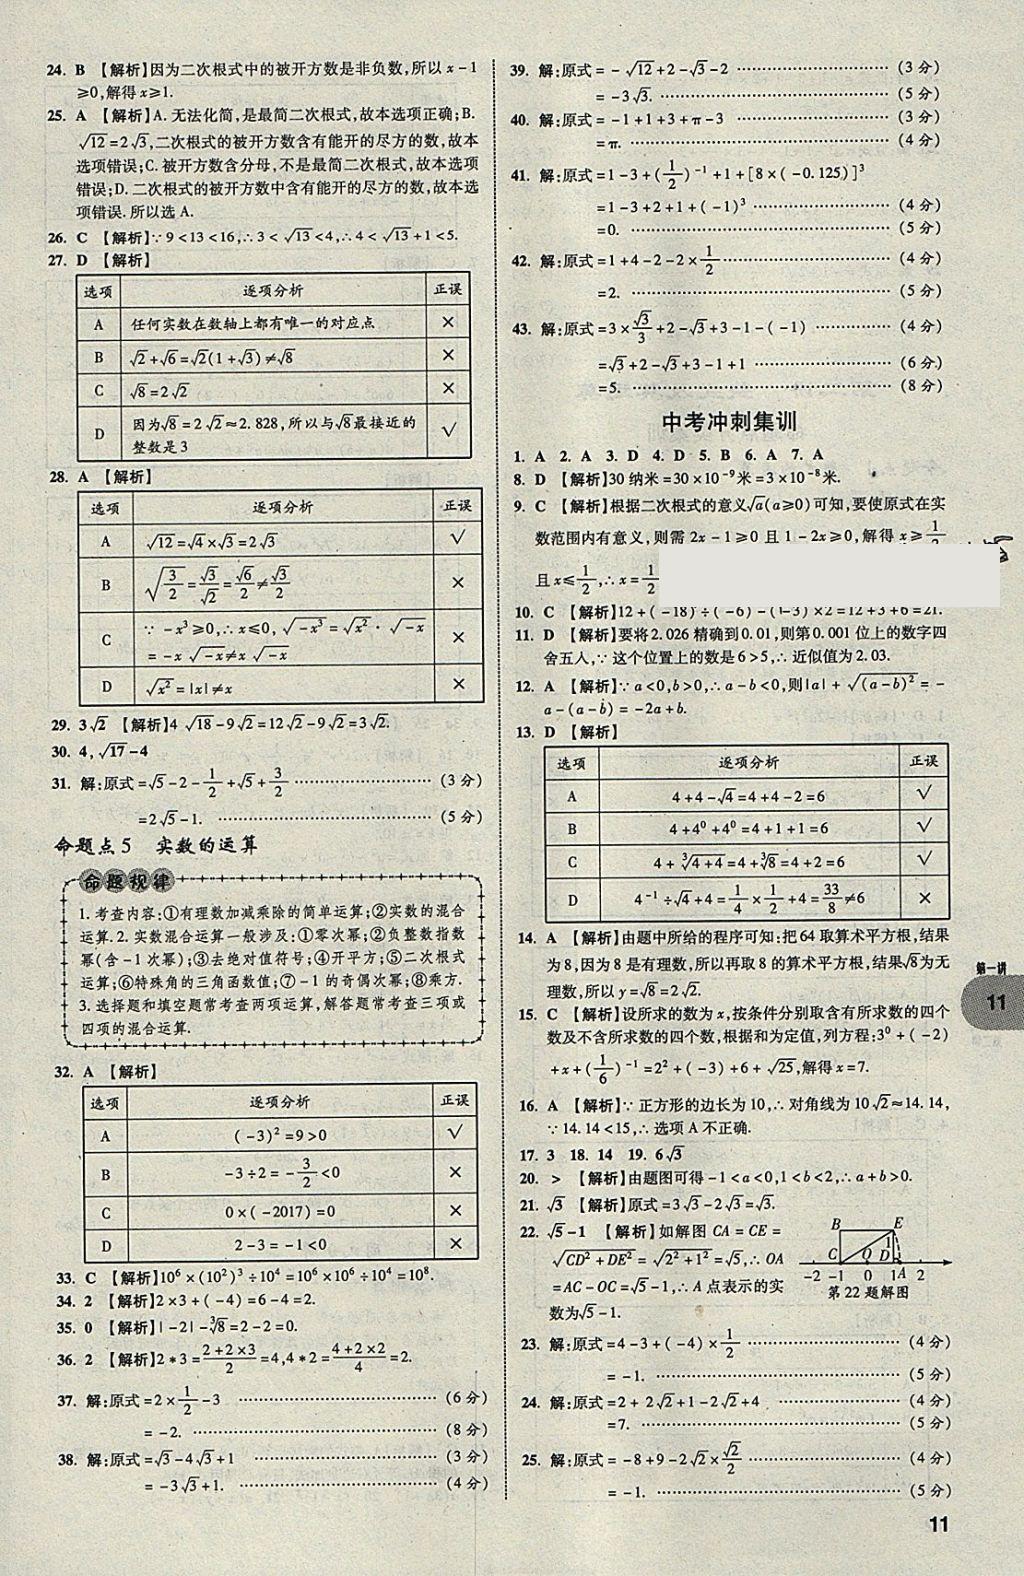 24. B 【解析】因为二次根式中的被开方数是非负数,所以 x-1
≥0,解得 x≥1.
25. A 【解析】A. 无法化简,是最简二次根式,故本选项正确;B.
√12=2√3,二次根式的被开方数含有能开的尽方的数,故本
选项错误;C. 被开方数含分母,不是最简二次根式,故本选项
错误;D. 二次根式的被开方数中含有能开的尽方的数,故本选
项错误. 所以选 A.
26. C 【解析】∵9<13<16,∴3<√13<4,∴4<√13+1<5.
27. D 【解析】
选项 逐项分析 正误
A 任何实数在数轴上都有唯一的对应点 ×
B √2+√6=√2(1+√3)≠√8 ×
C √8=2√2 ×
D 因为√8=2√2≈2.828,所以与√8最接近的
整数是3 √
28. A 【解析】
选项 逐项分析 正误
A √12=√4×√3=2√3 √
B √(3/2)=√3/√2=√6/2≠√3/2 ×
C ∵-x³≥0,∴x≤0,√(-x³)=√(x²)·√(-x)
=-x√(-x)≠x√(-x) ×
D √(x²)=|x|≠x ×
29. 3√2 【解析】4√18-9√2=12√2-9√2=3√2.
30. 4,√17-4
31. 解:原式=√5-2-1/2+√5+3/2 …………………… (3分)
=2√5-1. …………………… (5分)
命题点5 实数的运算
命题规律
1. 考查内容:①有理数加减乘除的简单运算;②实数的混合
运算.2. 实数混合运算一般涉及:①零次幂;②负整数指数
幂(含-1次幂);③去绝对值符号;④开平方;⑤二次根式
运算;⑥特殊角的三角函数值;⑦-1的奇偶次幂;⑧乘方.
3. 选择题和填空题常考查两项运算,解答题常考查三项或
四项的混合运算.
32. A 【解析】
选项 逐项分析 正误
A (-3)²=9>0 √
B -3÷2=-3/2<0 ×
C 0×(-2017)=0 ×
D 2-3=-1<0 ×
33. C 【解析】10⁶×(10²)³÷10⁴=10⁶×10⁶÷10⁴=10⁸.
34. 2 【解析】2×3+(-4)=6-4=2.
35. 0 【解析】|-2|-³√8=2-2=0.
36. 2 【解析】2*3=(2+2×3)/2=4,4*2=(4+2×2)/4=2.
37. 解:原式=2×1/2-3 …………………… (6分)
=-2. …………………… (8分)
38. 解:原式=√3-4√3+1 …………………… (3分)
=-3√3+1. …………………… (4分)
39. 解:原式=-√12+2-√3-2 …………………… (3分)
=-3√3. …………………… (5分)
40. 解:原式=-1+1+3+π-3 …………………… (3分)
=π. …………………… (4分)
41. 解:原式=1-3+(1/2)⁻¹+1+[8×(-0.125)]³
=1-3+2+1+(-1)³ …………………… (4分)
=0. …………………… (5分)
42. 解:原式=1+4-2-2×1/2 …………………… (4分)
=2. …………………… (5分)
43. 解:原式=3×√3/3+2-√3+3-1-(-1) …………… (4分)
=√3+2-√3+3-1+1 …………………… (6分)
=5. …………………… (8分)
中考冲刺集训
1. A 2. A 3. D 4. D 5. B 6. A 7. A
8. D 【解析】30纳米=30×10⁻⁹米=3×10⁻⁸米.
9. C 【解析】根据二次根式的意义√a(a≥0)可知,要使原式在实
数范围内有意义,则需 2x-1≥0 且 1-2x≥0,解得 x≥1/2
且 x≤1/2,∴x=1/2
10. C 【解析】12+(-18)÷(-6)-(-3)×2=12+3+6=21.
11. D 【解析】要将2.026精确到0.01,则第0.001位上的数字四
舍五入,∵这个位置上的数是6>5,∴近似值为2.03.
12. A 【解析】∵a<0,b>0,∴a-b<0,则|a|+√((a-b)²)=-
a-(a-b)=-2a+b.
13. D 【解析】
选项 逐项分析 正误
A 4+4-√4=4+4-2=6 √
B 4+4⁰+4⁰=4+1+1=6 √
C 4+³√(4+4)=4+³√8=4+2=6 √
D 4⁻¹÷√4+4=1/4×1/2+4=33/8≠6 ×
14. A 【解析】由题中所给的程序可知:把64取算术平方根,结果
为8,因为8是有理数,所以再取8的算术平方根,结果√8为无
理数,所以 y=√8=2√2.
15. C 【解析】设所求的数为x,按条件分别取含有所求数的四个
数及不含所求数的四个数,根据和为定值,列方程:3⁰+(-2)
+x+(1/6)⁻¹=2²+(-3)+6+√25,解得x=7.
16. A 【解析】∵正方形的边长为10,∴对角线为10√2≈14.14,
∵14.14<15,∴选项A不正确.
17. 3 18. 14 19. 6√3
20. > 【解析】由题图可得-1<a<0,1<b<2,∴a+b>0.
21. √3 【解析】原式=3√3-2√3=√3.
22. √5-1 【解析】如解图 CA=CE=
√(CD²+DE²)=√(2²+1²)=√5,∴OA
=AC-OC=√5-1,∴A点表示的实
数为√5-1.
B E
1
C O D
-2 -1 0 1 A 2
第22题解图
23. 解:原式=4-3+(-4)×1/2 …………………… (4分)
=-1. …………………… (5分)
24. 解:原式=2+2√2+1-2√2+4 …………………… (4分)
=7. …………………… (5分)
25. 解:原式=-8+9-2√2×√2/2 …………………… (4分)
=-1. …………………… (5分)
第一讲
11
11